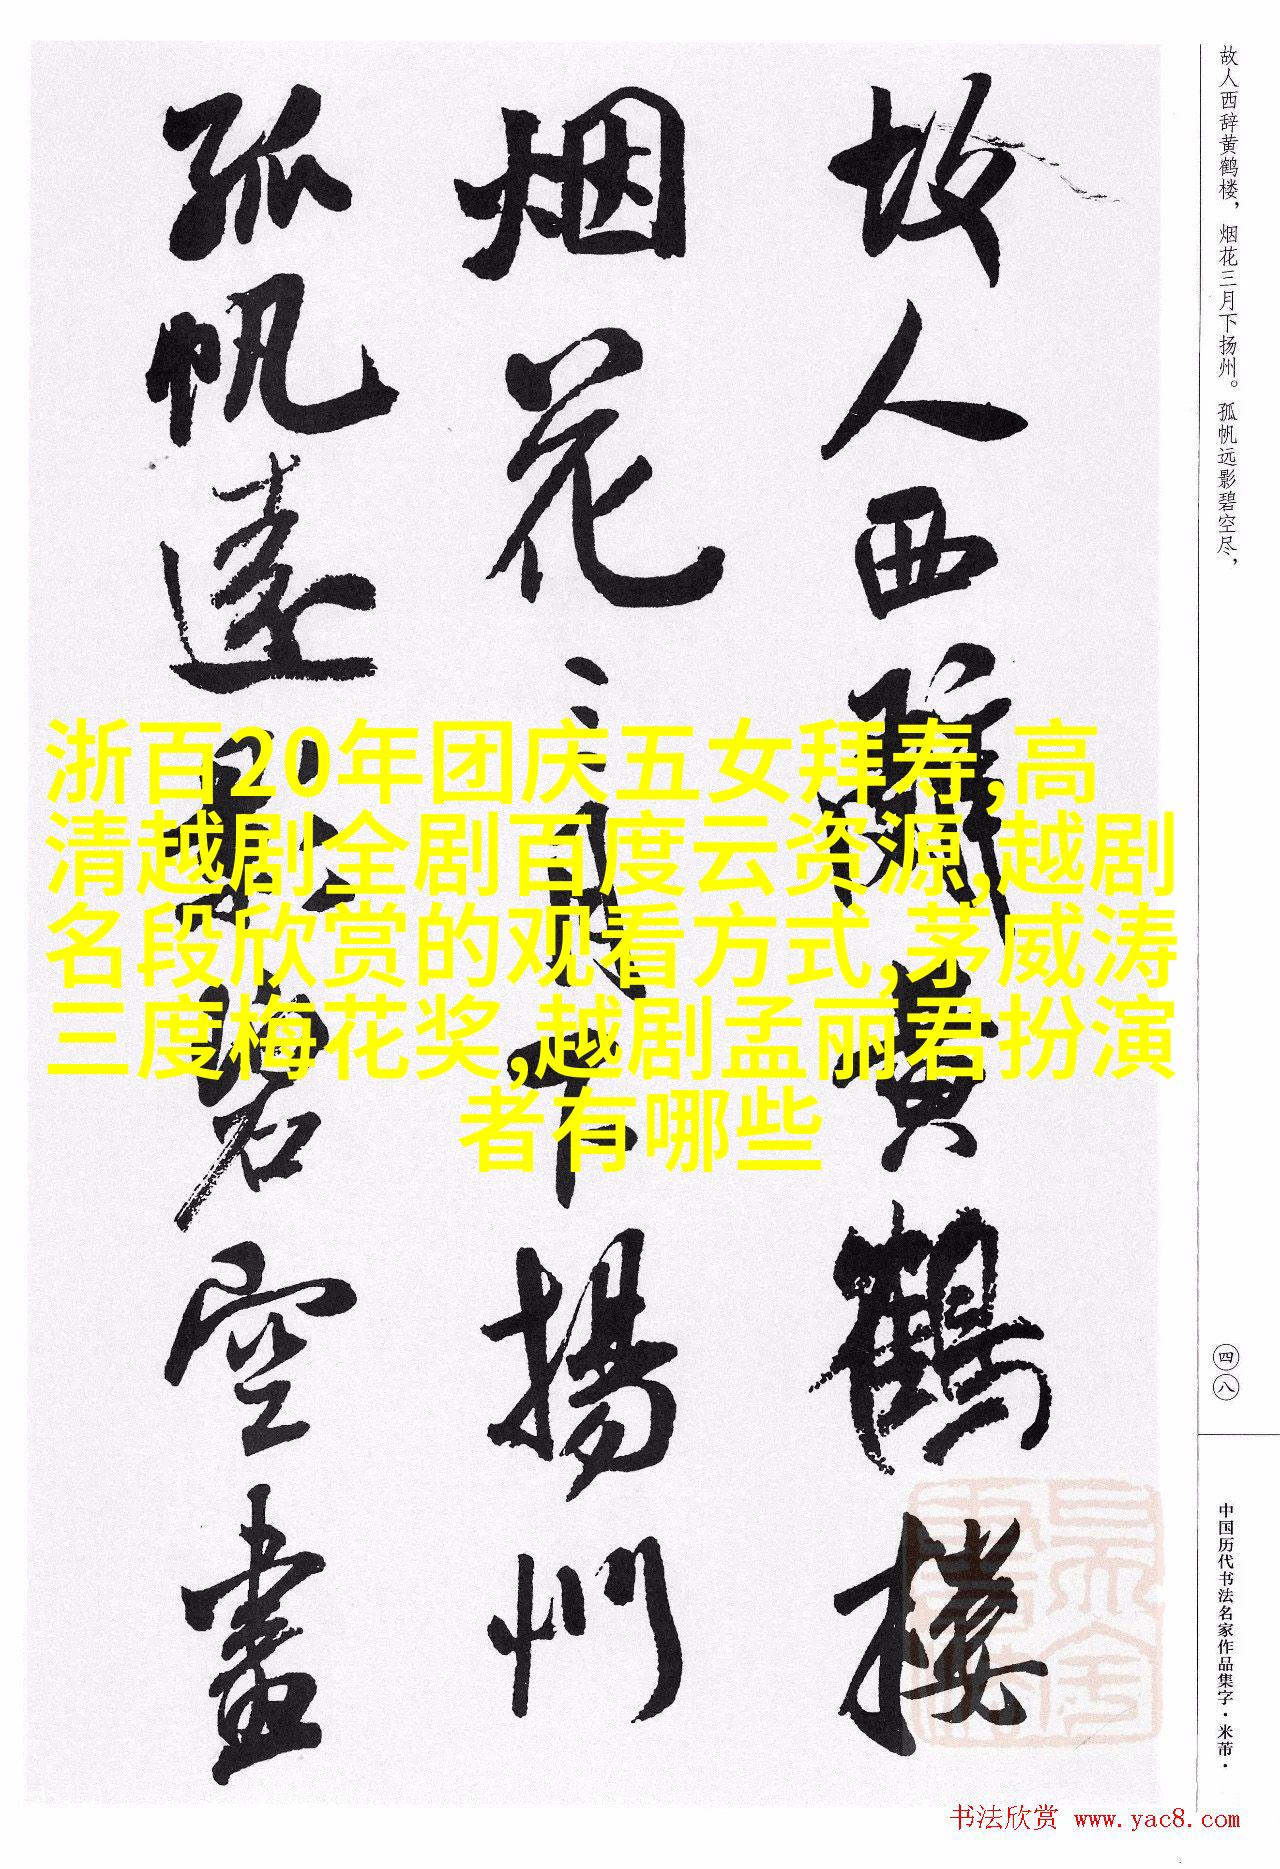 故人西辞黄鹤楼，烟花三月下扬州。孤帆远影碧空尽，
故人西辭黄鶴楼
烟花三月下揚州
孤帆遠影碧空盡
浙百20年团庆五女拜寿,高
清越剧全剧百度云资源,越剧
名段欣赏的观看方式,茅威涛
三度梅花奖,越剧孟丽君扮演
者有哪些
四八
中国历代书法名家作品集字·米芾·
书法欣赏 www.yac8.com